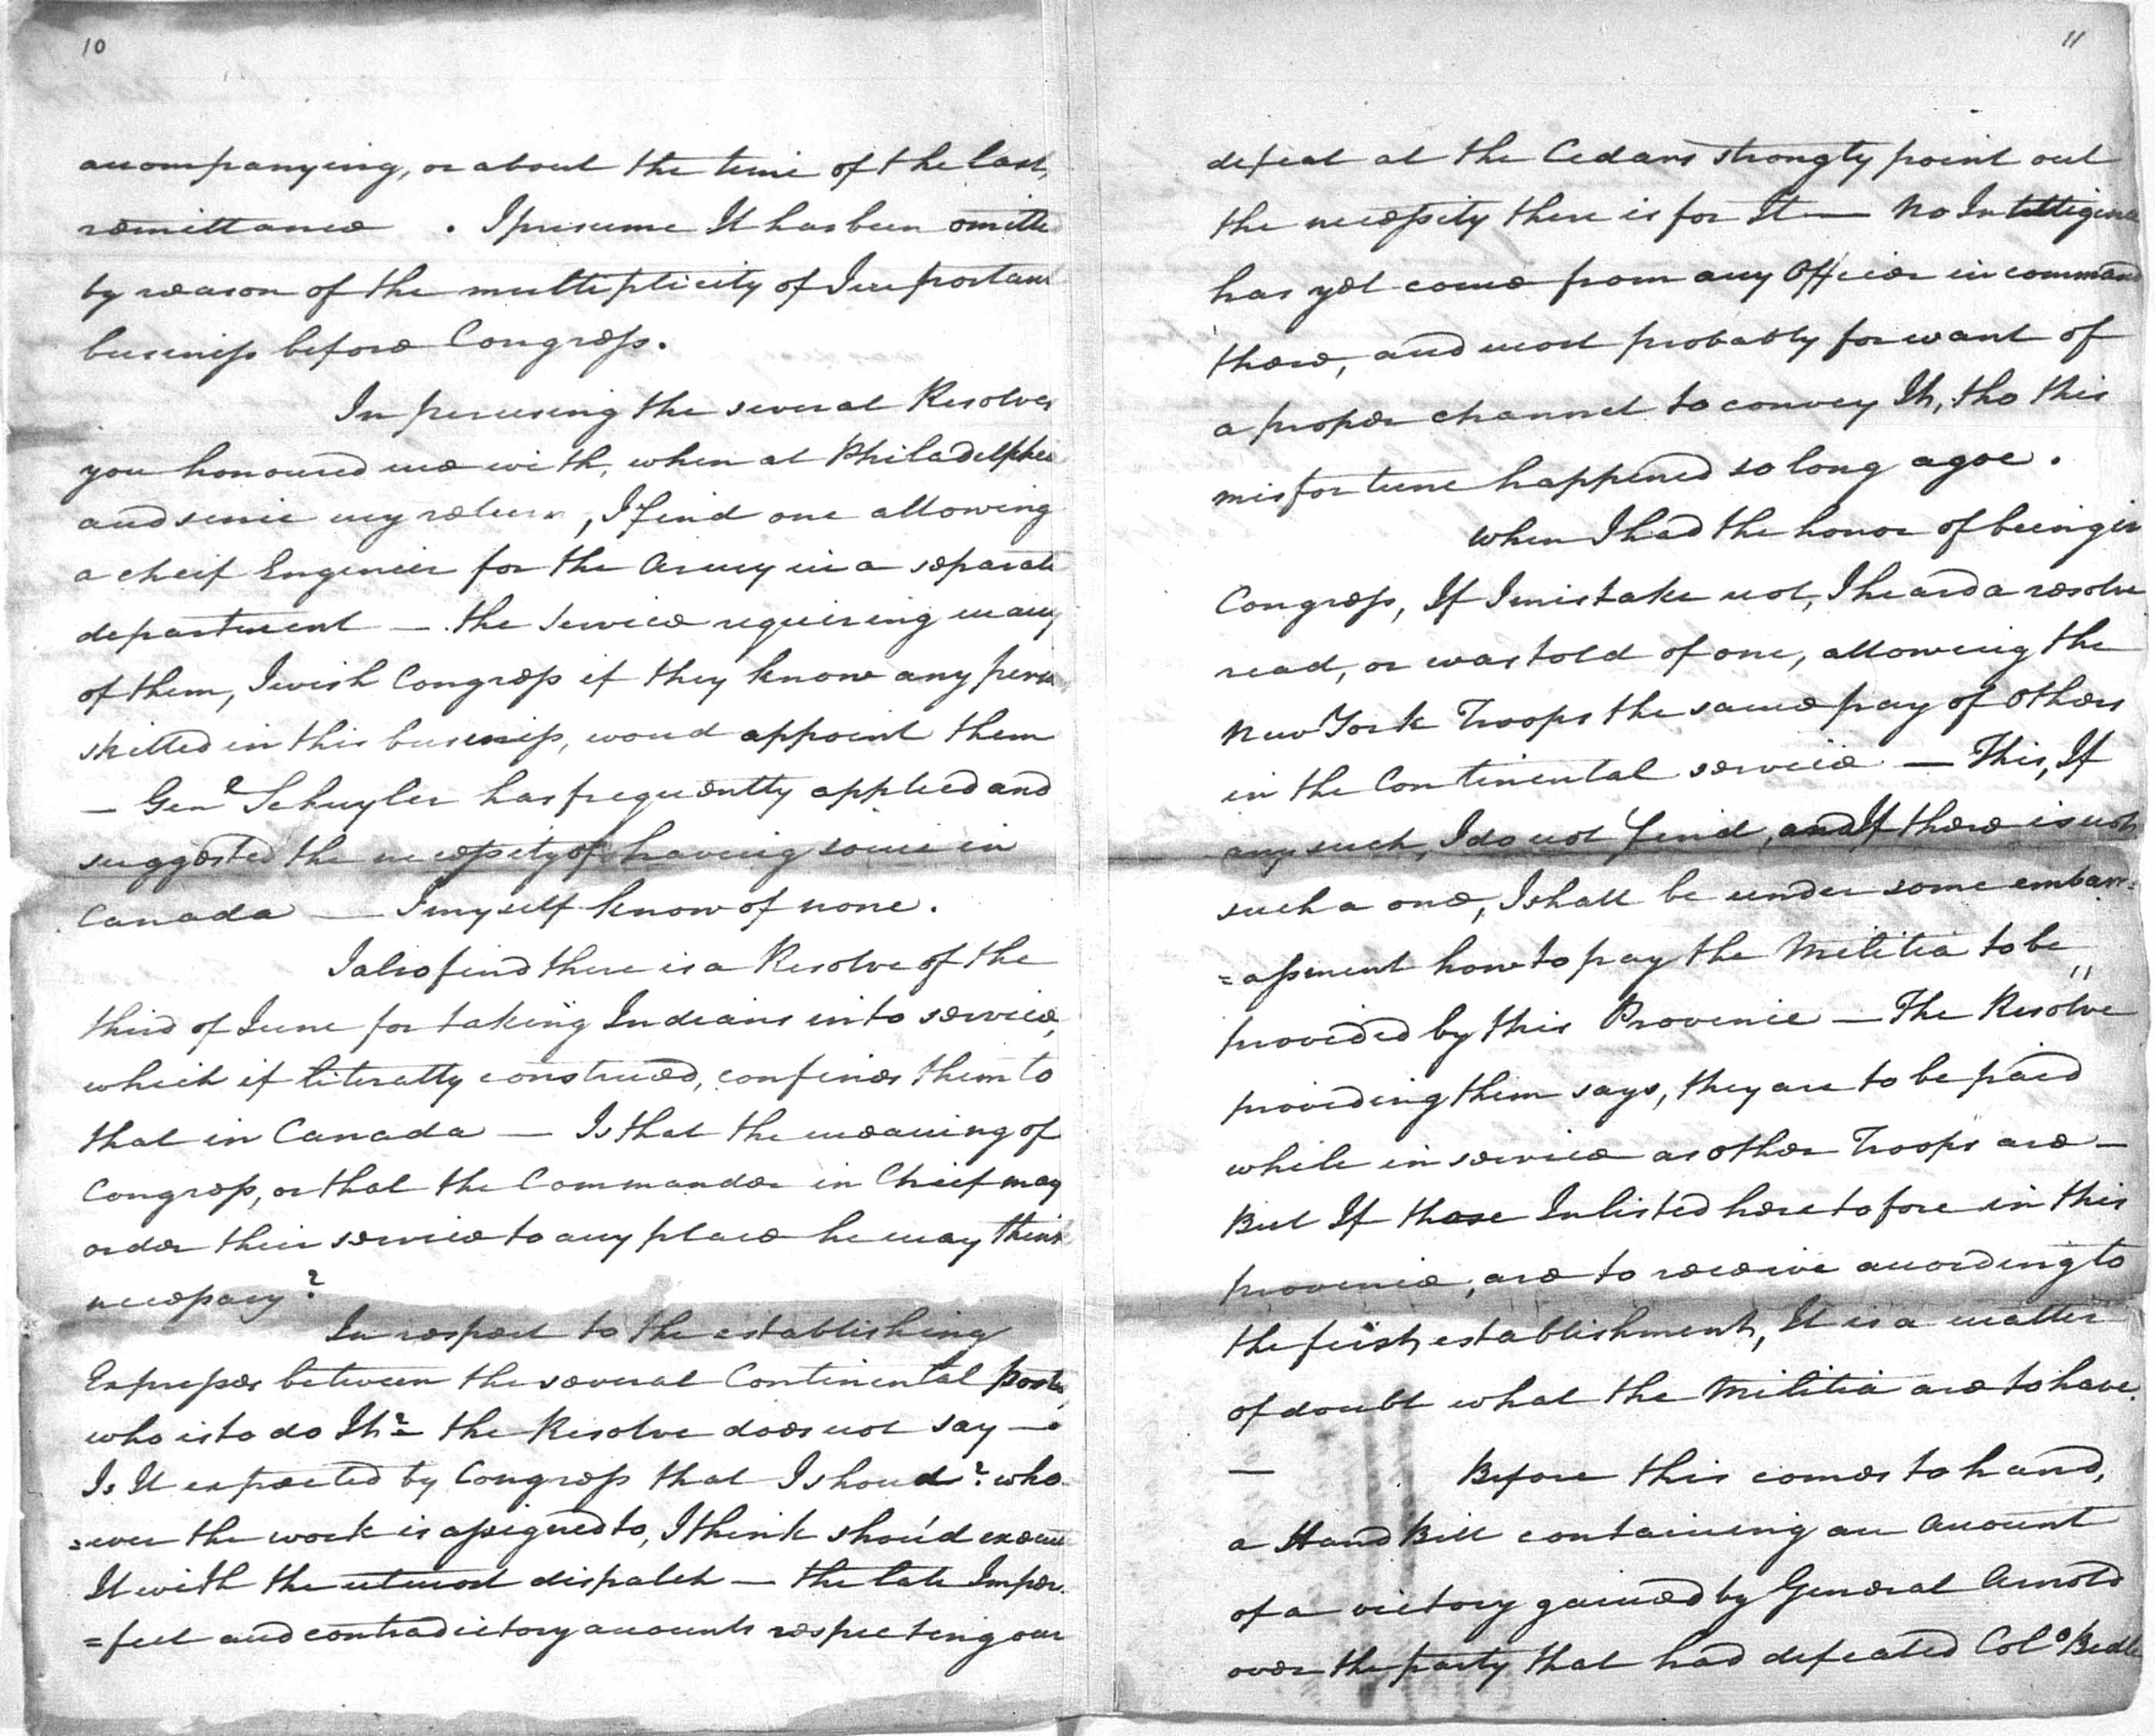 10
accompanying, or about the time of the last
remittance . I presume It has been omitted
by reason of the multiplicity of Important
business before Congress.
In perusing the several Resolves
you honoured me with, when at Philadelphia
and since my return, I find one allowing
a cheif Engineer for the Army in a separate
department — the service requiring many
of them, I wish Congress if they know any persons
skilled in this business, woud appoint them
— Genl Schuyler has frequently applied and
suggested the necessity of having some in
Canada — I myself know of none.
I also find there is a Resolve of the
third of June for taking Indians into service,
which if literally construed, confines them to
that in Canada — Is that the meaning of
Congress, or that the Commander in Cheif may
order their service to any place he may think
necessary?
In respect to the establishing
Expresses between the several Continental posts,
who is to do It? the Resolve does not say —
Is It expected by Congress that I shoud? who
=ever the work is assigned to, I think shou'd execute
It with the utmost dispatch — the late Imper
=fect and contradictory accounts respecting our
11
defeat at the Cedars strongly point out
the necessity there is for It — No Intelligence
has yet come from any Officer in command
there, and most probably for want of
a proper channel to convey It, tho this
misfortune happened so long agoe.
When I had the honor of being in
Congress, If I mistake not, I heard a resolve
read, or was told of one, allowing the
New York Troops the same pay of others
in the Continental service — This, If
any such, I do not find, and If there is not
such a one, I shall be under some embarr=
=assment how to pay the Militia to be
"
provided by this Province — The Resolve
providing them says, they are to be paid
while in service as other Troops are —
But If those Inlisted heretofore in this
province, are to receive according to
the first establishment, It is a matter
of doubt what the Militia are to have.
— Before this comes to hand,
a Hand Bill containing an Account
of a victory gained by General Arnold
over the party that had defeated Colo Bedle